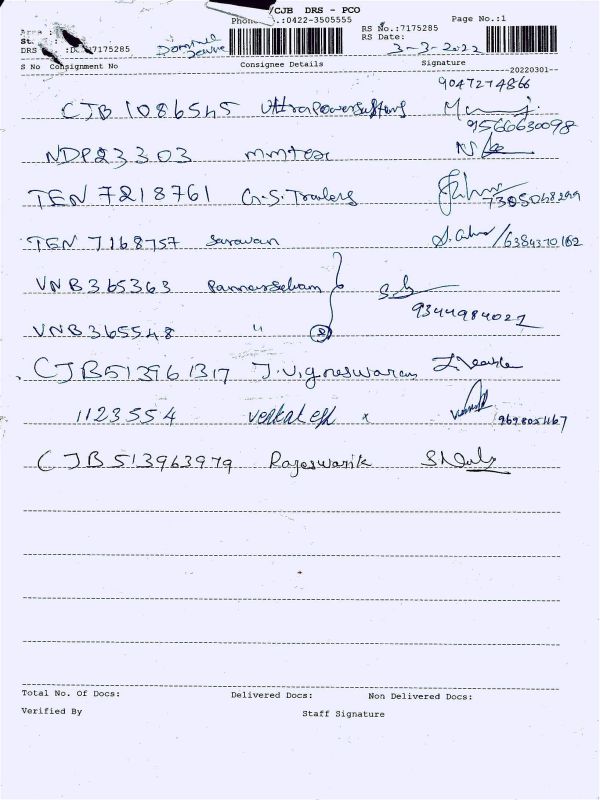 /CJB DRS - PCO
Phon :0422-3505555 Page No.:1
RS No.:7175285
DRS 7175285 RS Date: 3-3-2022
S No Consignment No Consignee Details Signature
--20220301--
9047274866
CJB 1086545
9566630098
NDP23303 mmtex
TEN 7218761 G.S. Traders
7305068299
TEN 7168757 Saravan 6384370162
VNB365363 Pannerselvam
9344984027
VNB365548 " 2
CJB513961317 J.Vigneswaran
1123554 Venkatesh x
CJB513963979 Rajeswarik
Total No. Of Docs: Delivered Docs: Non Delivered Docs:
Verified By Staff Signature